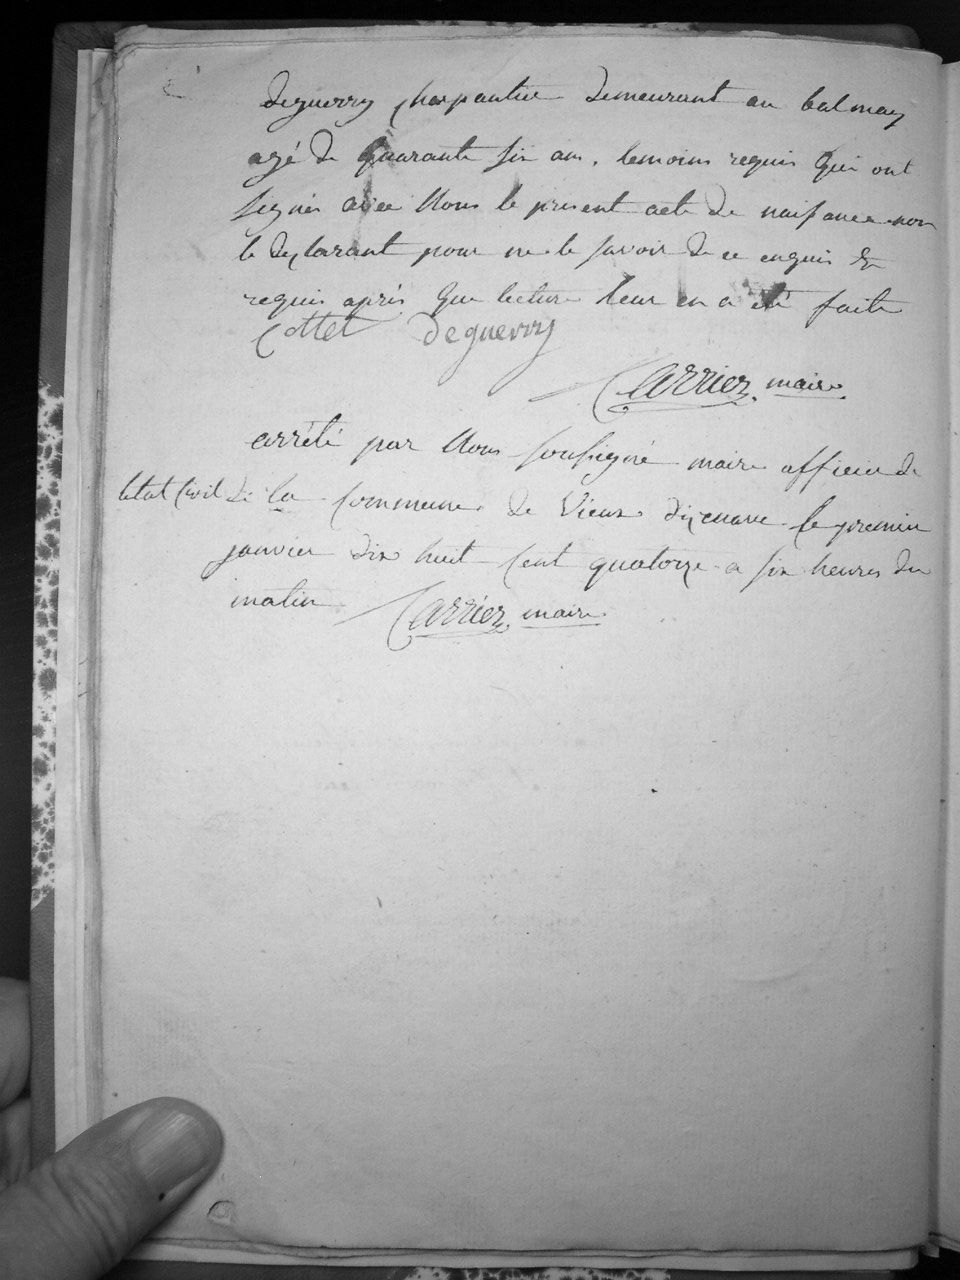 deguerry charpantier demeurant au balmay
agé de quarante six ans, temoins requis qui ont
signés avec Nous le present acte de naissance non
le declarant pour ne le savoir de ce enquis &
requis après que lecture leur en a été faite
Cottet deguerry
Carrier, maire.
arrêté par Nous soussigné maire officier de
letat Civil de la Commune de Vieux dizenave le premier
janvier dix huit Cent quatorze a six heures du
matin Carrier, maire